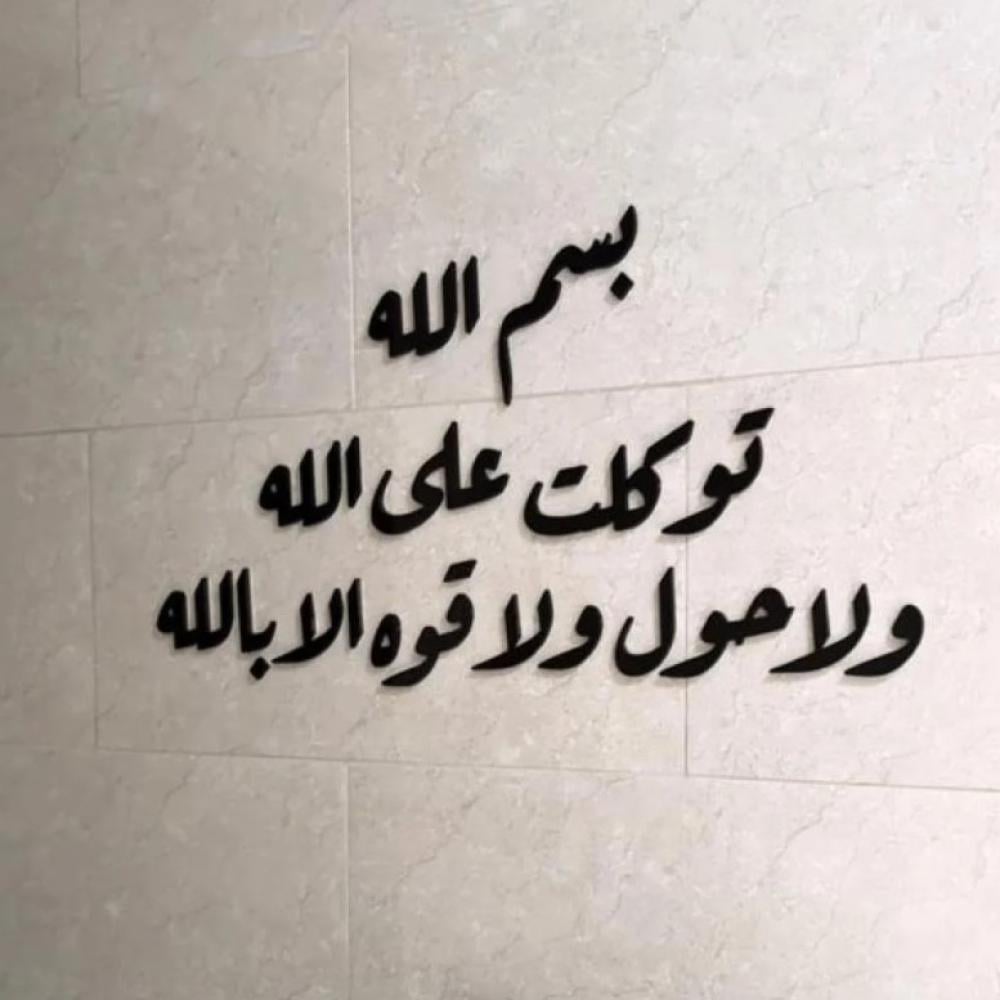 بسم الله
توكلت على الله
ولا حول ولا قوه الا بالله